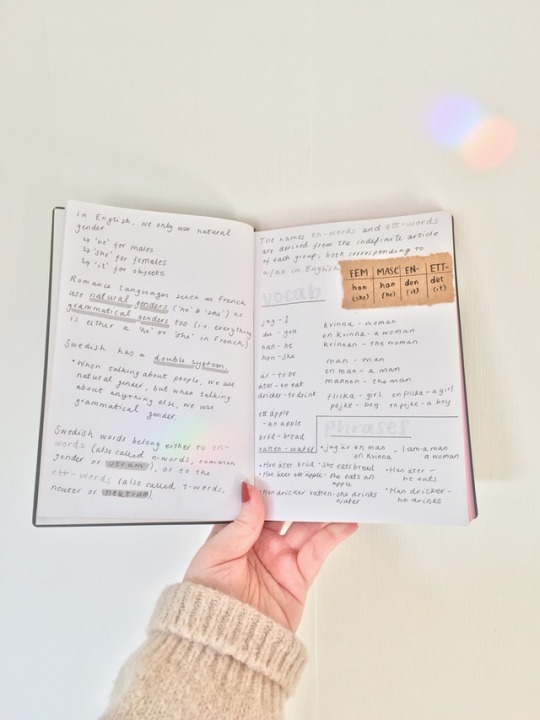 In English, we only use natural
gender
↳ 'he' for males
↳ 'she' for females
↳ 'it' for objects
Romance languages such as French,
use natural genders ('he' & 'she') as
grammatical genders too (i.e. everything
is either a 'he' or 'she' in French)
Swedish has a double system.
* When talking about people, we use
natural gender, but when talking
about anything else, we use
grammatical gender.
Swedish words belong either to en-
words (also called n-words, common
gender or utrum), or to the
ett-words (also called t-words,
neuter or neutrum)
The names en-words and ett-words
are derived from the indefinite article
of each group, both corresponding to
a/an in English
FEM MASC EN- ETT-
han han den det
(she) (he) (it) (it)
vocab
jag - I
du - you
han - he
hon - she
är - to be
äter - to eat
dricker - to drink
ett äpple
- an apple
bröd - bread
vatten - water
kvinna - woman
en kvinna - a woman
kvinnan - the woman
man - man
en man - a man
mannen - the man
flicka - girl en flicka - a girl
pojke - boy en pojke - a boy
Phrases
* jag är en man - I am a man
en kvinna a woman
* Hon äter bröd - she eats bread
* Hon äter ett äpple - she eats an
apple
* Hon dricker vatten - she drinks
water
* Han äter -
he eats
* Han dricker -
he drinks